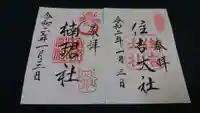 奉拝
住吉大社
令和二年一月三日
奉拝
楠珺社
令和二年一月三日